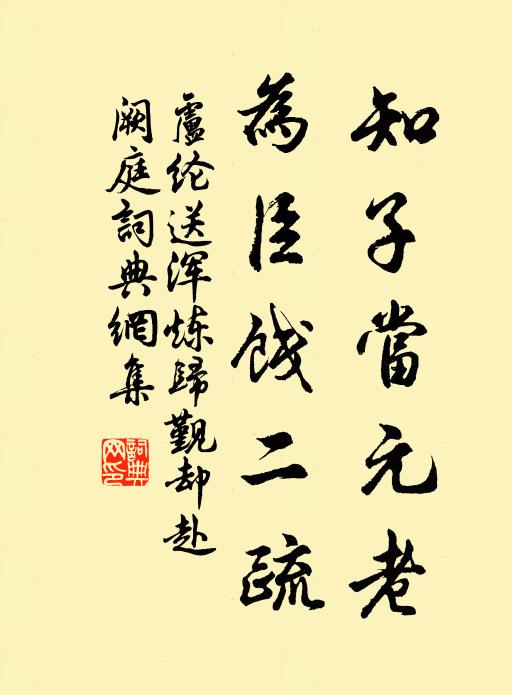 知子當元老
為臣餞二疏
盧纶送渾炼歸觐却赴
阙庭詞典網集
詞典网印